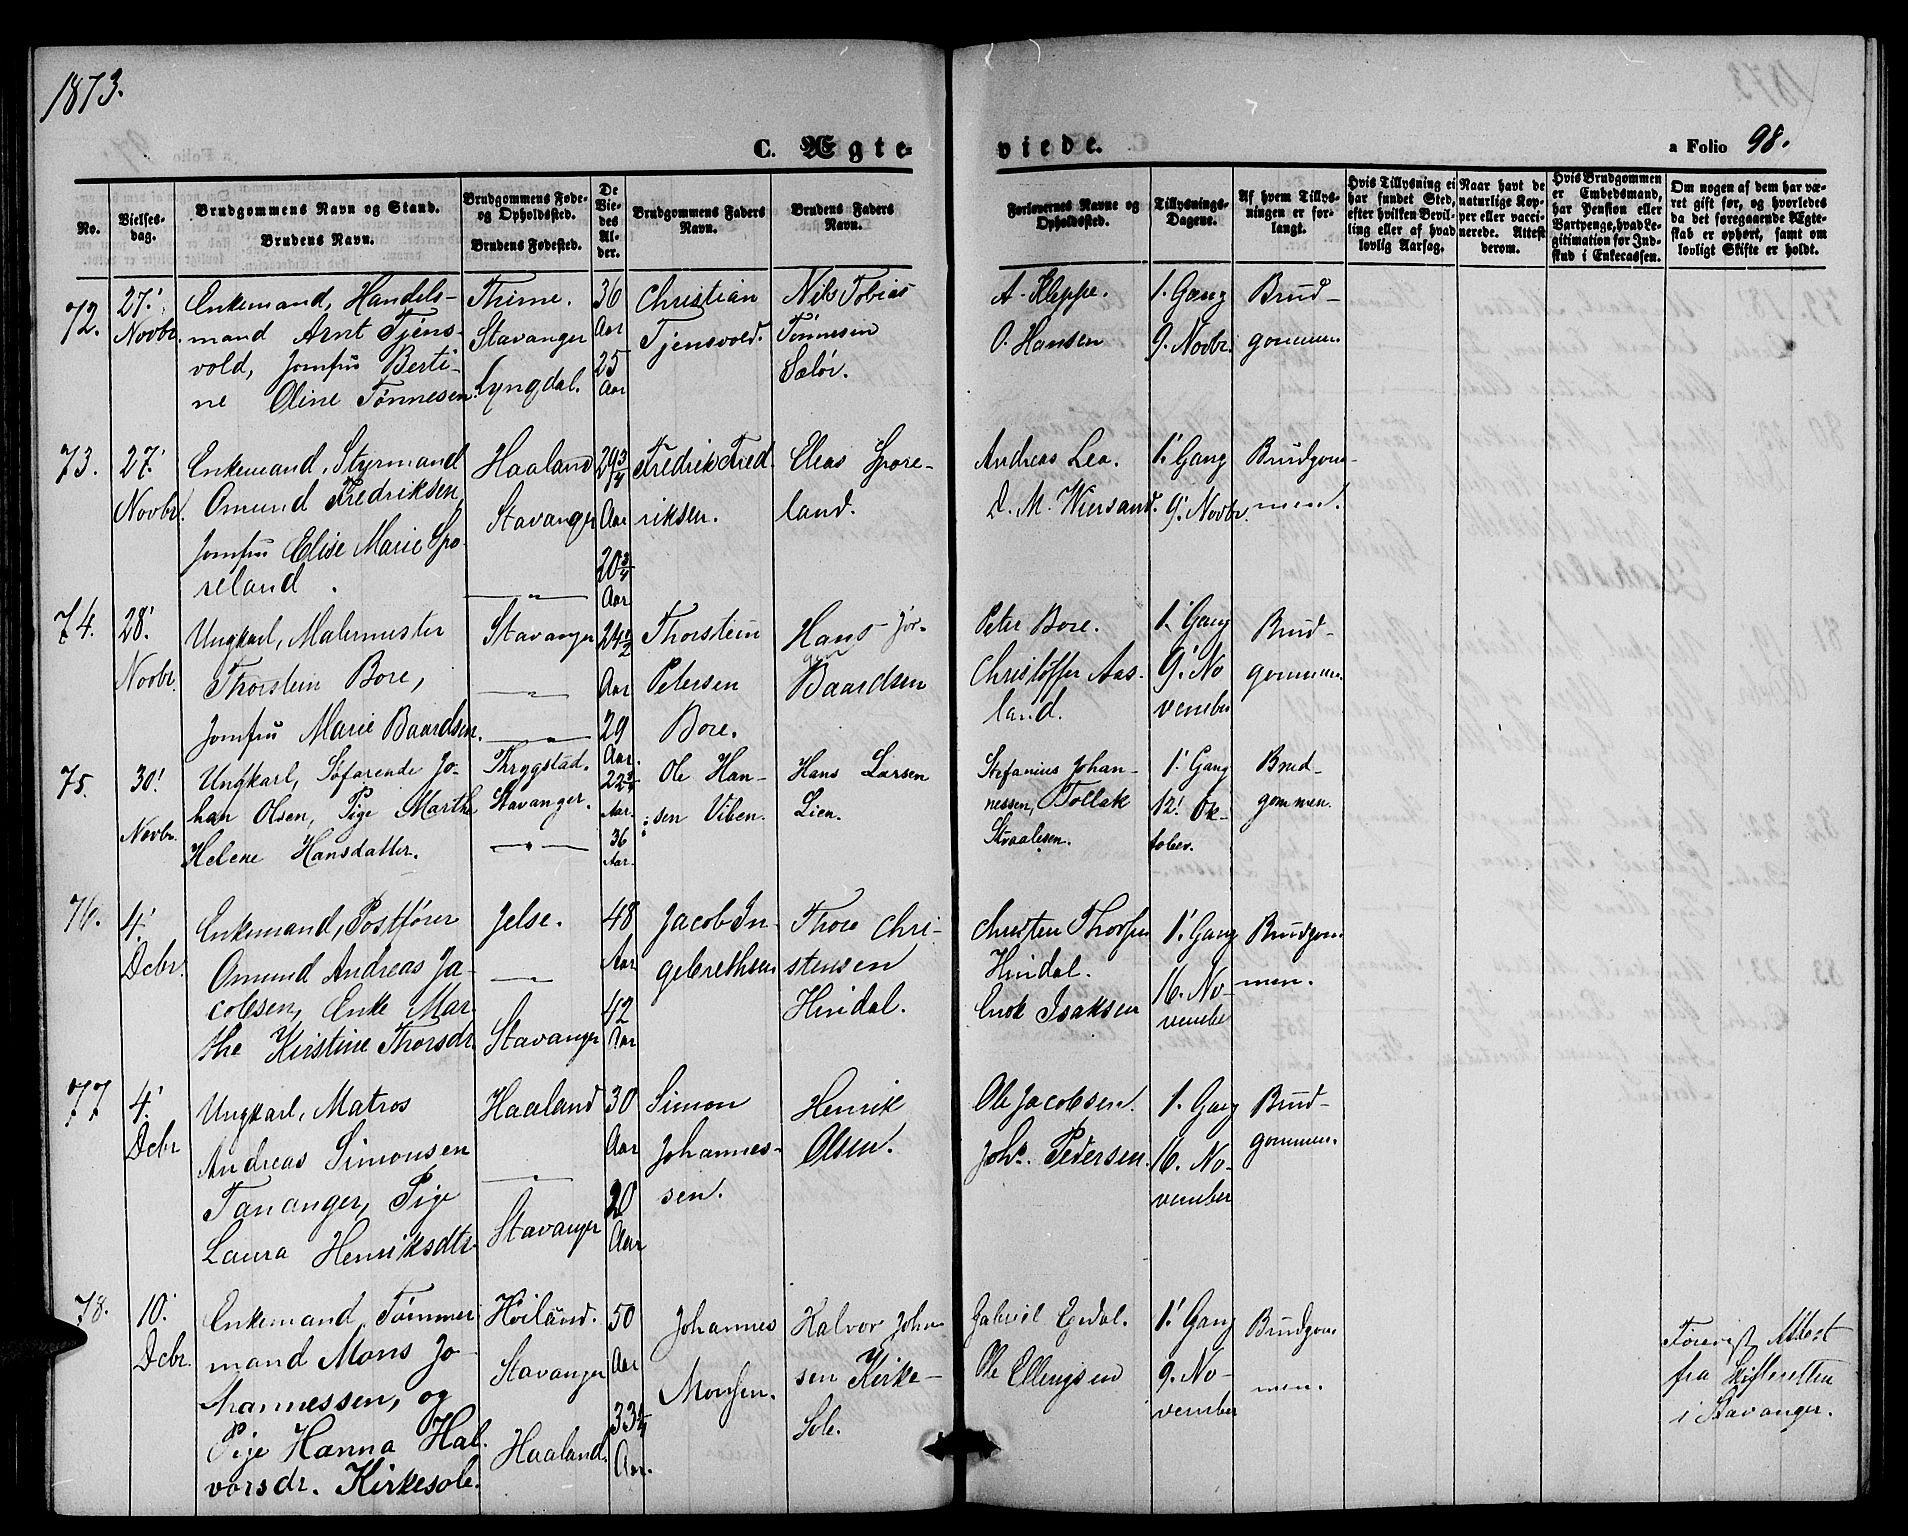 1873.
C. Ægte-
viede.
a Folio 98.
No.
Vielses-
dag.
Brudgommens Navn og Stand.
Brudens Navn.
Brudgommens Føde-
og Opholdssted.
Brudens Fødested.
De
Vie-
des
Al-
der.
Brudgommens Faders
Navn.
Brudens Faders
Navn.
Forlovernes Navne og
Opholdssted.
Tillysnings-
Dagene.
Af hvem Tillys-
ningen er for-
langt.
Hvis Tillysning ei
har fundet Sted,
efter hvilken Bevil-
ling eller af hvad
lovlig Aarsag.
Naar havt de
naturlige Kop-
per eller vacci-
nerede. Attest
derom.
Hvis Brudgommen
er Embedsmand,
har Pension eller
Vartpenge, hvad Le-
gitimation for Ind-
skud i Enkecassen.
Om nogen af dem har væ-
ret gift før, og hvorledes
da det foregaaende Ægte-
skab er ophørt, samt om
lovligt Skifte er holdt.
72.
27.'
Novbr.
Enkemand, Handels-
mand Arnt Tjens-
vold, Jomfru Berti-
ne Oline Tønnesen.
Thime.
Stavanger
Lyngdal.
36
Aar
25
Aar
Christian
Tjensvold.
Nils Tobias
Tønnesen
Sælør.
A. Kleppe.
O. Hansen
1. Gang
9. Novbr.
Brud-
gommen.
73.
27.'
Novbr.
Enkemand, Styrmand
Omund Fredriksen,
Jomfru Elise Marie Spo-
reland.
Haaland
Stavanger
—„—
29 3/4
Aar
20 3/4
Aar
Fredrik Fred-
riksen.
Elias Spore-
land.
Andreas Lea.
D. M. Wiersand.
1.' Gang
9.' Novbr.
Brudgom-
men.
74.
28.'
Novbr.
Ungkarl, Malermester
Thorstein Bore,
Jomfru Marie Baardsen.
Stavanger
—„—
—„—
24 1/2
Aar
29
Aar.
Thorstein
Petersen
Bore.
Hans Jør-
gen
Baardsen
Peter Bore.
Christoffer Aas-
land.
1. Gang
9.' No
vember
Brud-
gommen.
75.
30.'
Novbr.
Ungkarl, Søfarende Jo-
han Olsen, Pige Marthe
Helene Hansdatter.
Thrygstad.
Stavanger.
—„—
22 3/4
Aar.
36
Aar.
Ole Han-
sen Viben.
Hans Larsen
Lien.
Stefanius Johan-
nessen, Tollak
Straalesen.
1.' Gang
12.' Ok-
tober.
Brud-
gommen.
76.
4.'
Dcbr.
Enkemand, Postfører
Omund Andreas Ja-
cobsen, Enke Mar-
the Kirstine Thorsdr.
Jelse.
—„—
Stavanger
48
Aar
42
Aar
Jacob In-
gebrethsen
Thore Chri-
stensen
Hindal.
Christen Thorsen
Hindal.
Enok Isaksen
1.' Gang
16. No-
vember
Brudgom
men.
77
4.'
Dcbr
Ungkarl, Matros
Andreas Simonsen
Tananger, Pige
Laura Henriksdtr.
Haaland
—„—
Stavanger
30
Aar
20
Aar
Simon
Johannes-
sen.
Henrik
Olsen.
Ole Jacobsen.
Johs. Pedersen.
1. Gang
16. No-
vember
Brud-
gommen.
78.
10.'
Dcbr.
Enkemand, Tømmer
mand Mons Jo-
hannessen, og
Pige Hanna Hal-
vorsdr. Kirkesole.
Høiland.
Stavanger
Haaland.
50
Aar
33 1/4
Aar.
Johannes
Monsen.
Halvor John-
sen Kirke-
Sole.
Gabriel Egedal.
Ole Ellingsen
1.' Gang
9. No-
vember
Brudgom
men.
Forevist Attest
fra Skifteretten
i Stavanger.